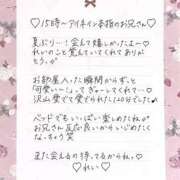 ♡15時〜アイネイン本指のお兄さん♡
夏ぶり〜！会えて嬉しかったよー
くれいのこと覚えててくれてありが
とう。♡
お部屋入った瞬間からずっと
可愛い〜〜！ってぎゅーしてくれて♡
沢山愛で愛でられた120分でした♡
ベッドでもいーっぱい楽しめたね♡
お兄さん反応良いからいじめたく
なっちゃう笑
また会える日待ってるからね。♡
♡れい♡